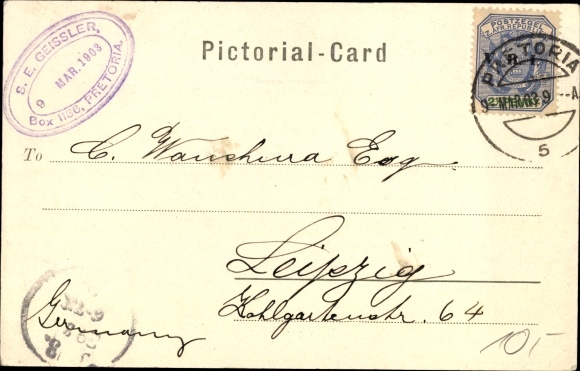 S. E. GEISSLER,
9 MAR. 1903
Box 1150, PRETORIA.
Pictorial-Card
POSTZEGEL
Z. AFR. REPUBLIEK
PRETORIA
9 MAR 03 9 -- A
5
To C. Wanshura Esq.
Leipzig
Kohlgartenstr. 64
Germany
10,-